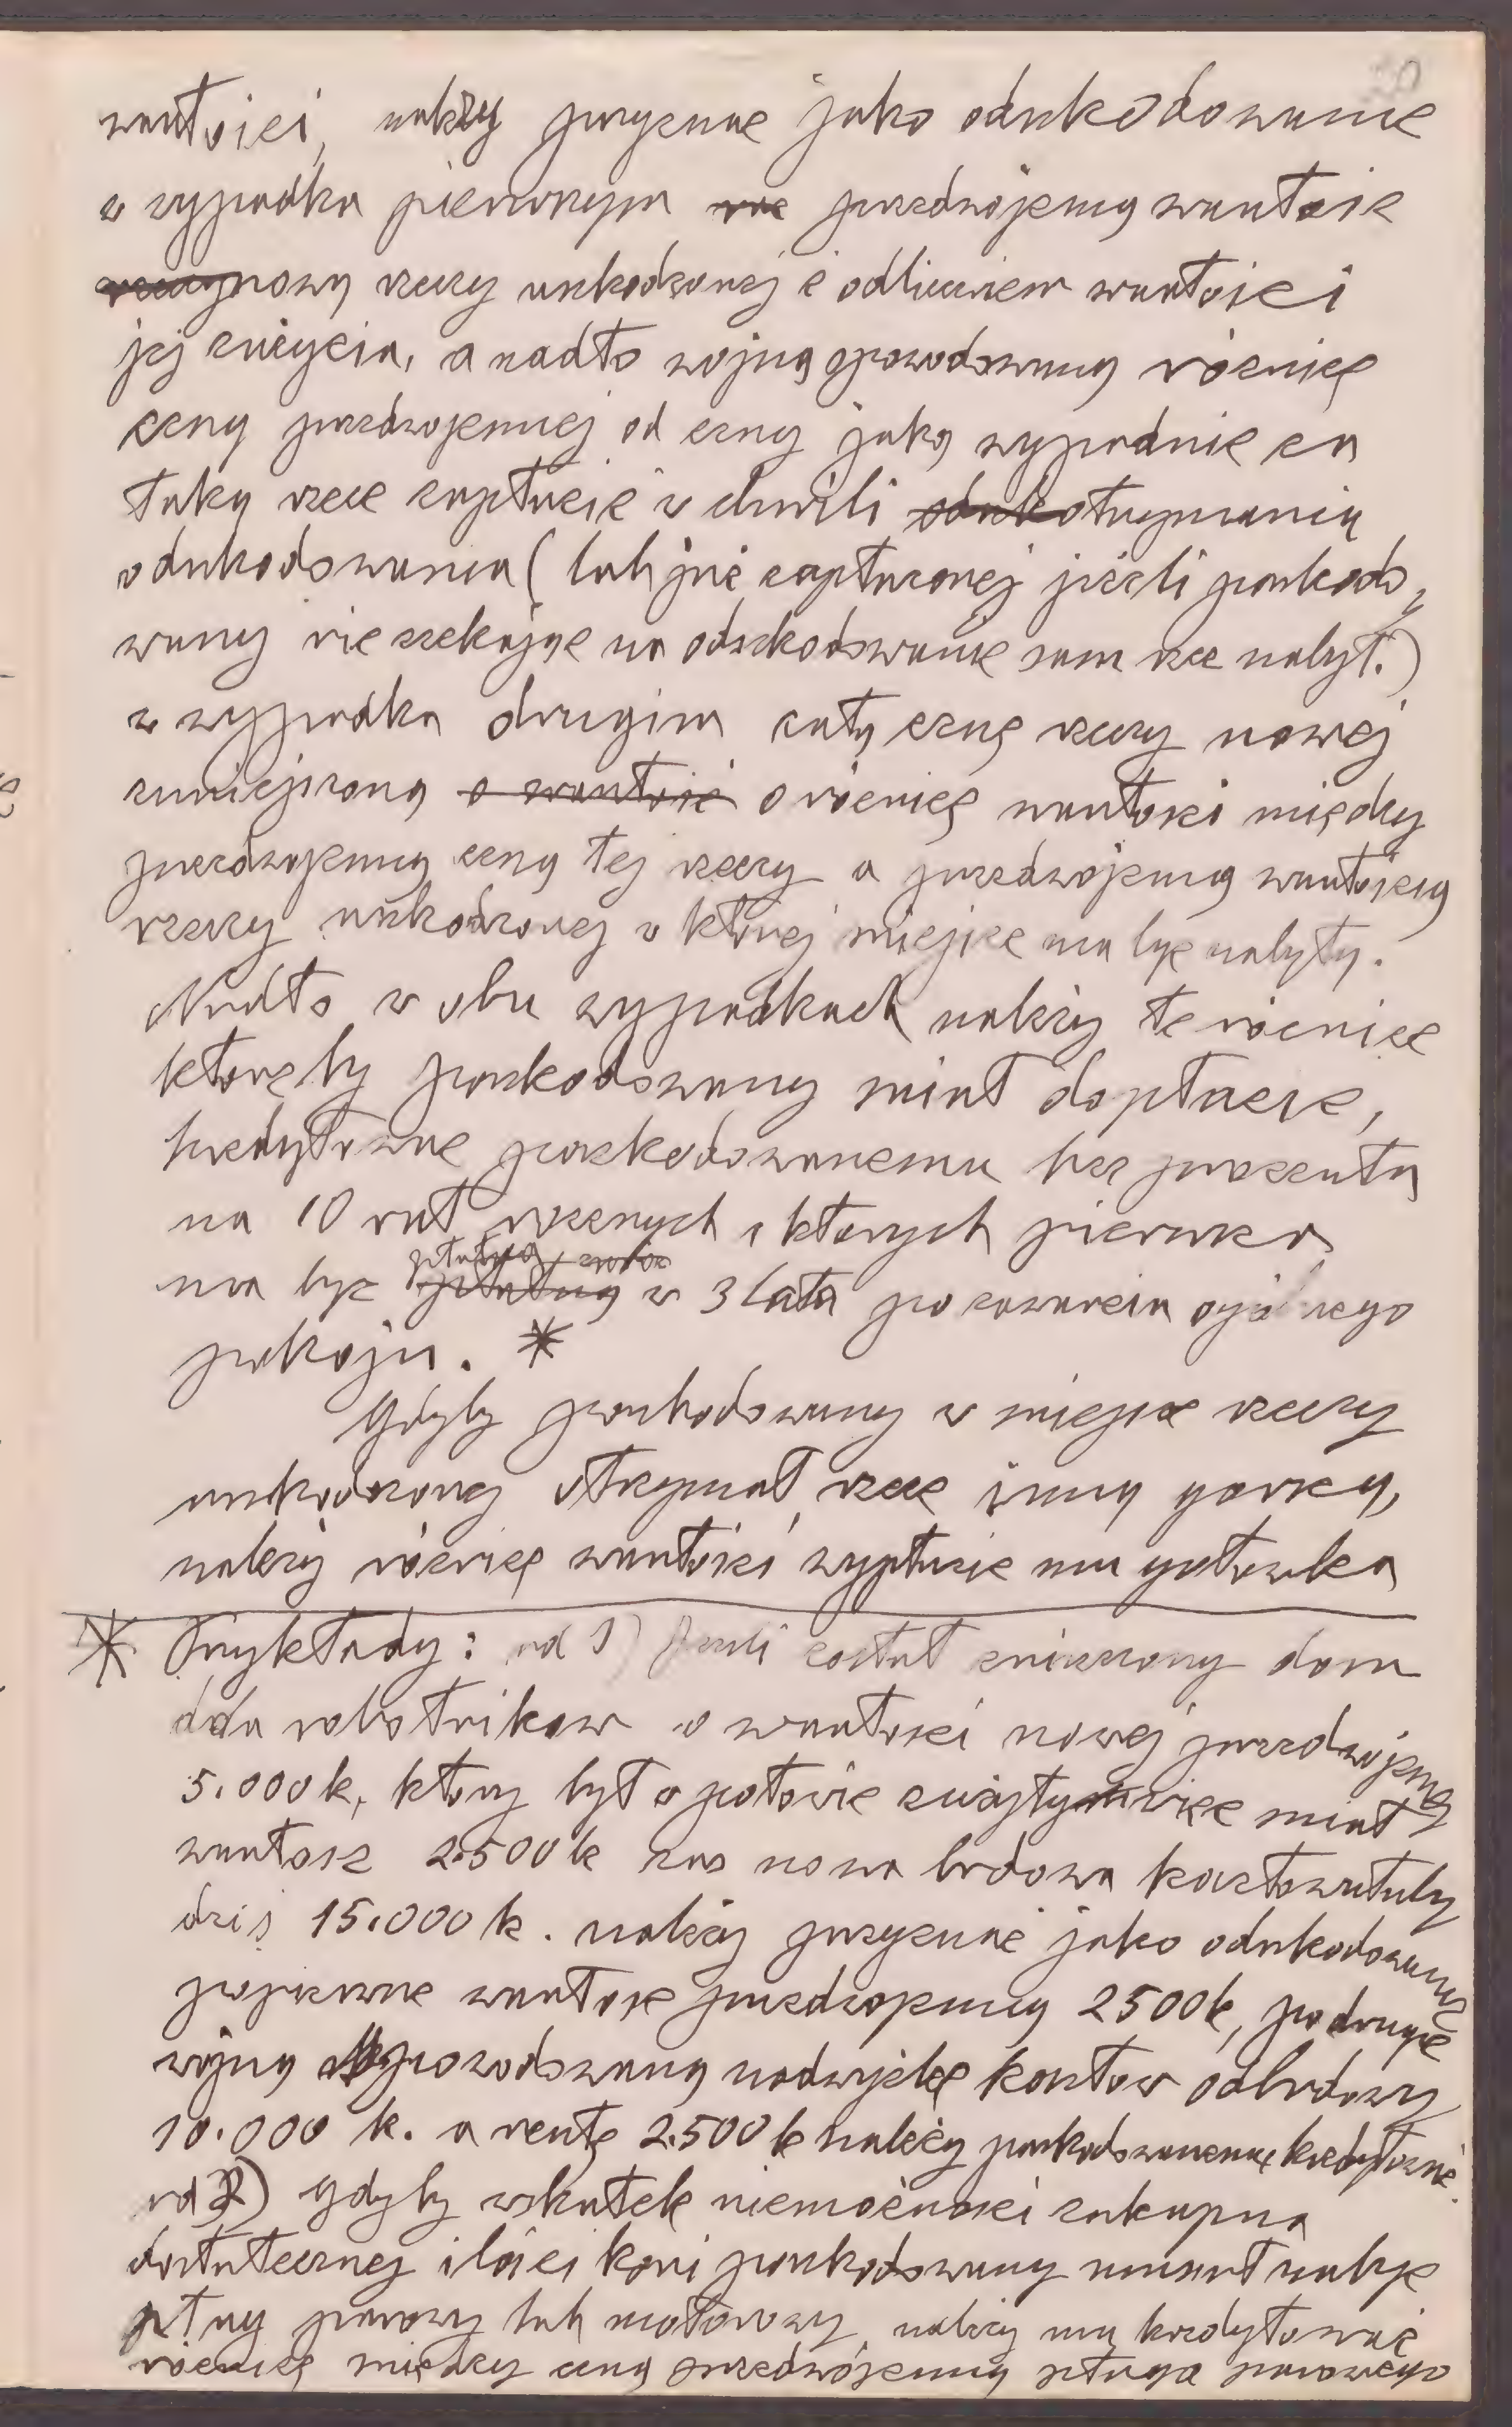 wartości, należy przyznać jako odszkodowanie
w wypadku pierwszym przedwojenną wartość
nowej rzeczy uszkodzonej z odliczeniem wartości
jej zużycia, a nadto wojną spowodowaną różnicę
ceny przedwojennej od ceny jaką wypadnie za
taką rzecz zapłacić w chwili otrzymania
odszkodowania (lub już zapłaconej jeżeli poszkodo-
wany nie czekając na odszkodowanie sam rzecz nabył.)
w wypadku drugim całą cenę rzeczy nowej
zmniejszoną o wartość o różnicę wartości między
przedwojenną ceną tej rzeczy a przedwojenną wartością
rzeczy uszkodzonej w której miejsce ma być nabyty.
Nadto w obu wypadkach należy te różnice
któreby poszkodowany miał dopłacić,
kredytować poszkodowanemu bez procentu
na 10 rat rocznych z których pierwsza
ma być płatną w 3 lata po zawarciu ogólnego
pokoju. *
Gdyby poszkodowany w miejsce rzeczy
uszkodzonej otrzymał rzecz inną gorszą,
należy różnicę wartości wypłacić mu gotówką
* Przykłady: ad 1) Jeżeli został zniszczony dom
dla robotników o wartości nowej przedwojennej
5.000 k, który był w połowie zużyty więc miał
wartość 2.500 k zaś nowa budowa kosztowałaby
dziś 15.000 k. należy przyznać jako odszkodowanie
po pierwsze wartość przedwojenną 2500 k, po drugie
wojną spowodowaną nadwyżkę kosztów odbudowy
10.000 k. a resztę 2.500 k należy poszkodowanemu kredytować.
ad 2) Gdyby wskutek niemożności zakupna
dostatecznej ilości koni poszkodowany musiał nabyć
pług parowy lub motorowy, należy mu kredytować
różnicę między ceną przedwojenną pługa parowego